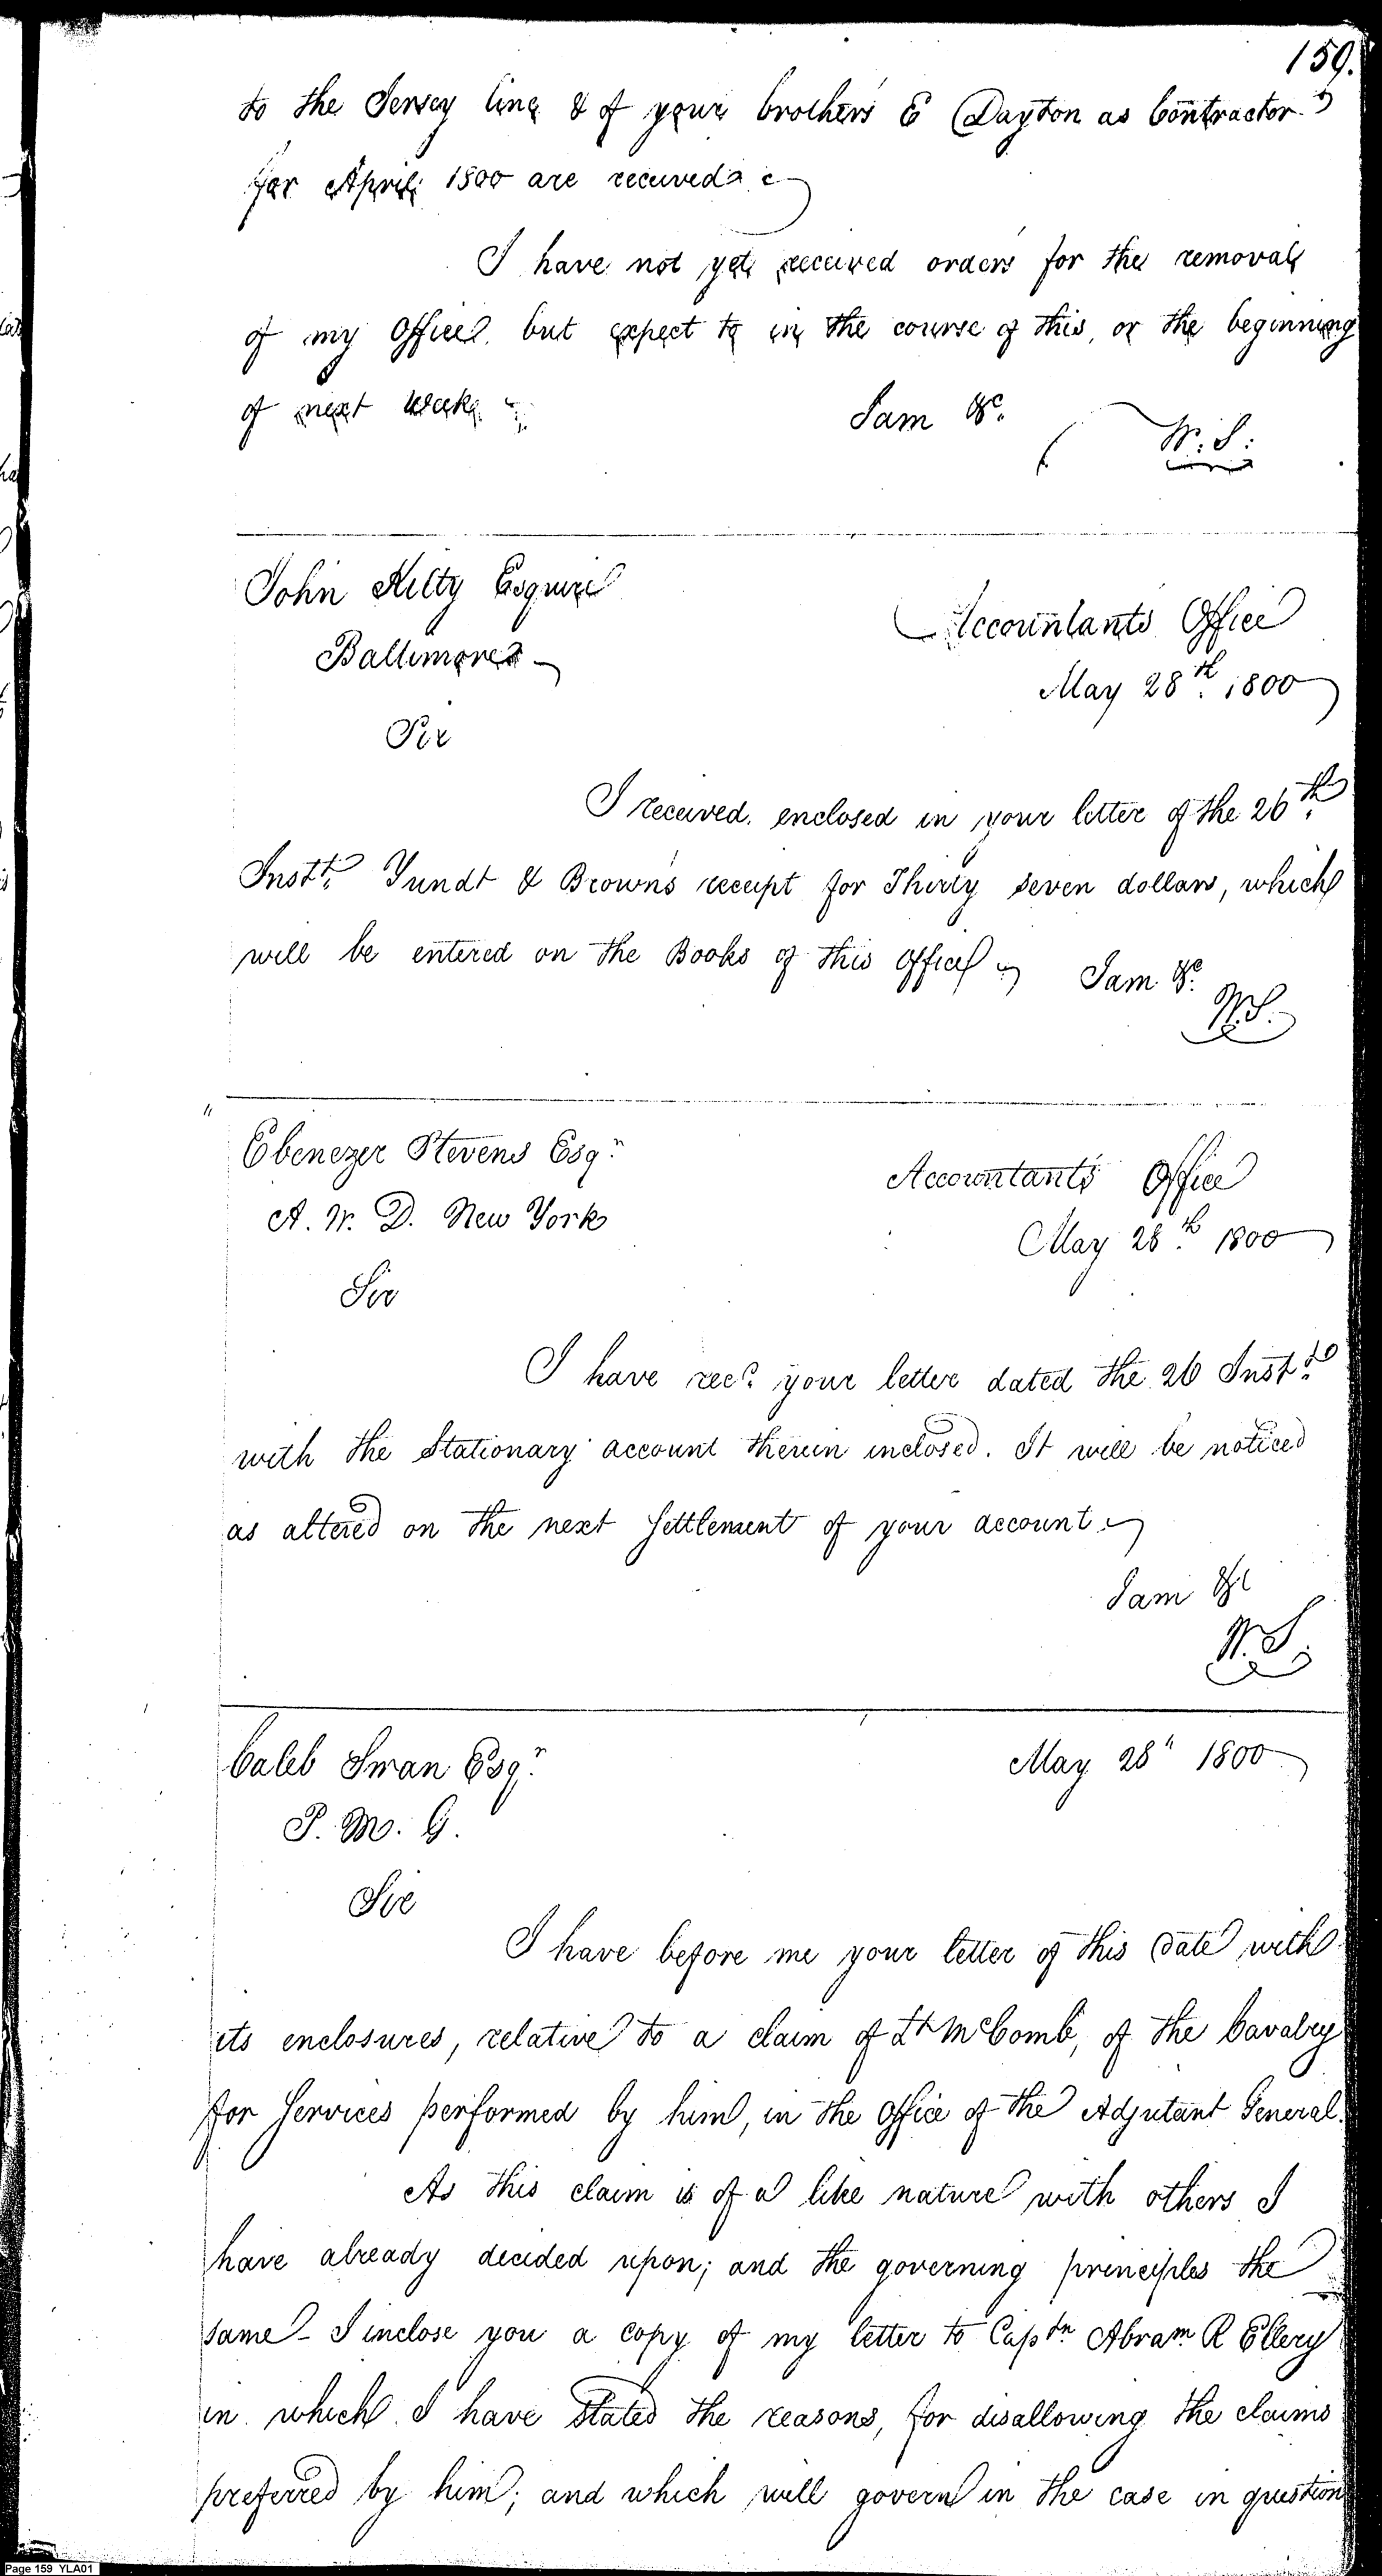 159.
to the Jersey line & of your brothers E Dayton as Contractor
for April 1800 are received
I have not yet received orders for the removal
of my Office. but expect to in the course of this, or the beginning
of next week
I am &c.
W. S.
John Kilty Esquire
Accountants Office
Baltimore
May 28th. 1800
Sir
I received, enclosed in your letter of the 26th.
Instt. Yundt & Brown's receipt for Thirty seven dollars, which
will be entered on the Books of this Office
I am &c.
W.S.
Ebenezer Stevens Esqr.
Accountant's Office
A. W. D. New York
May 28th. 1800
Sir
I have recd. your letter dated the 26 Instt.
with the Stationary account therein inclosed. It will be noticed
as altered on the next Settlement of your account
I am &c
W.S.
Caleb Swan Esqr.
May 28th 1800
P. M. G.
Sir
I have before me your letter of this date with
its enclosures, relative to a claim of Lt McComb, of the Cavalry
for Services performed by him, in the Office of the Adjutant General.
As this claim is of a like nature with others I
have already decided upon; and the governing principles the
same - I inclose you a copy of my letter to Captn Abram R Ellery
in which I have stated the reasons, for disallowing the claims
preferred by him; and which will govern in the case in question
Page 159 YLA01